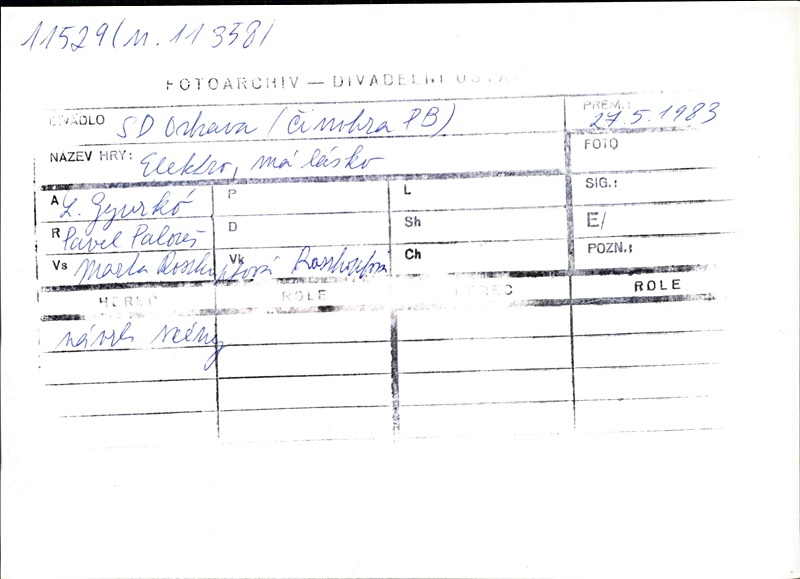 11529 (n. 11358)
FOTOARCHIV — DIVADELNÍ ÚSTAV
DIVADLO SD Ostrava (činohra PB)
PREM.: 27.5.1983
NÁZEV HRY: Elektro, má lásko
FOTO
A L. Gyurkó P L SIG.:
R Pavel Palouš D Sh E/
Vs Marta Roszkopfová Vk Roszkopfová Ch POZN.:
HEREC ROLE HEREC ROLE
návrh scény